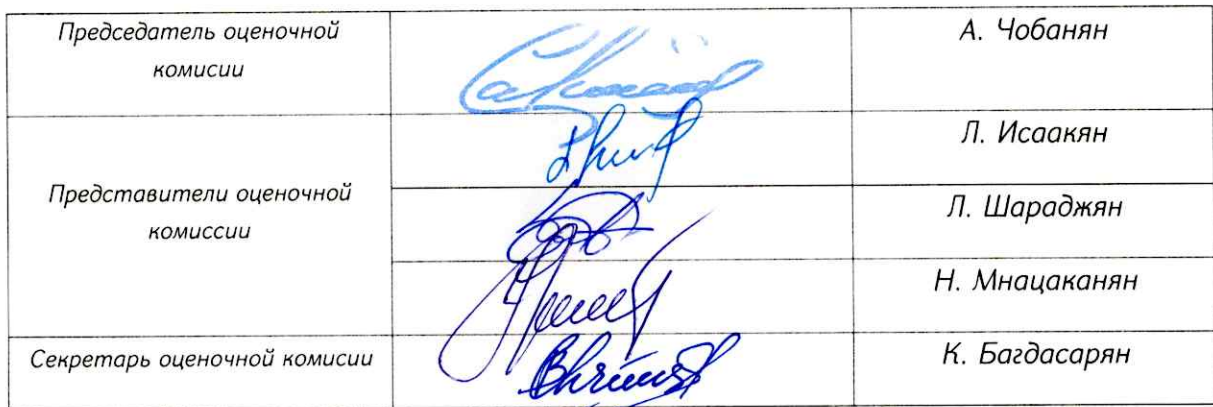 Председатель оценочной
комисии
А. Чобанян
Л. Исаакян
Представители оценочной
комиссии
Л. Шараджян
Н. Мнацаканян
Секретарь оценочной комисии
К. Багдасарян